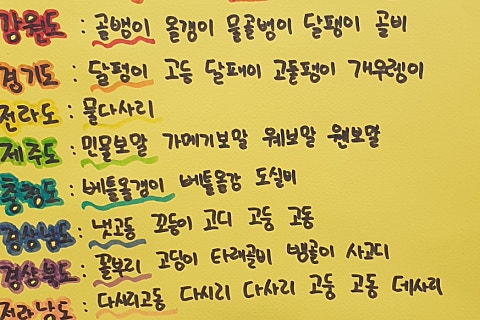 강원도 : 골뱅이 올갱이 물골뱅이 달팽이 골비
경기도 : 달팽이 고등 달패이 고돌팽이 개우렝이
전라도 : 물다사리
제주도 : 민물보말 가메기보말 웨보말 웬보말
충청도 : 베틀올갱이 베틀올강 도실비
경상남도 : 냇고동 꼬등이 고디 고둥 고동
경상북도 : 꼴부리 고딩이 타래골비 뱅골이 사고디
전라남도 : 다시리고동 다시리 다사리 고둥 고동 데사리